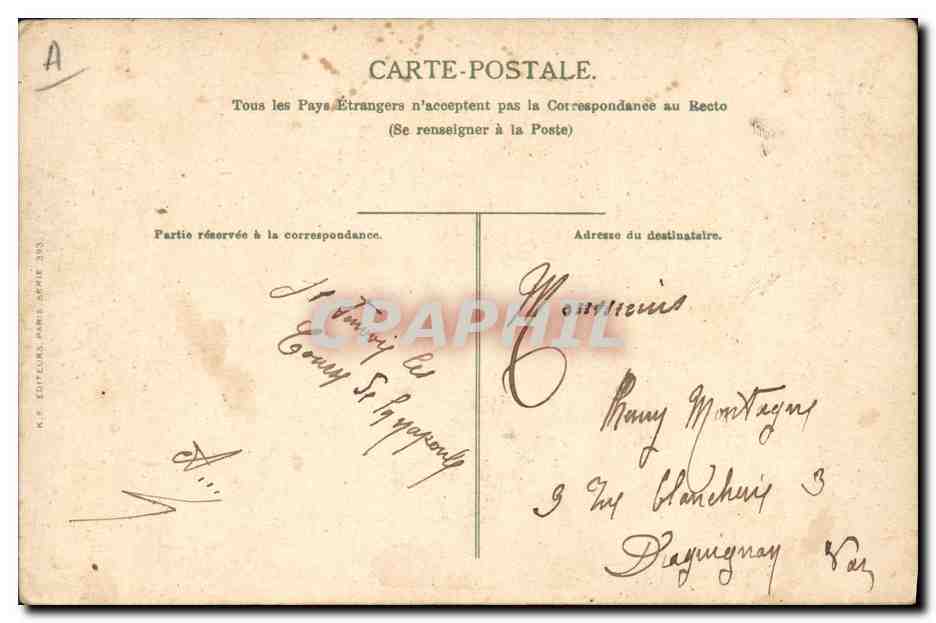 A
CARTE-POSTALE.
Tous les Pays Étrangers n'acceptent pas la Correspondance au Recto
(Se renseigner à la Poste)
Partie réservée à la correspondance.
Adresse du destinataire.
K. F. EDITEURS, PARIS SERIE 393.
CPAPHIL
les
A...
Monsieur
Montagne
3 rue blancherie 3
Draguignan Var